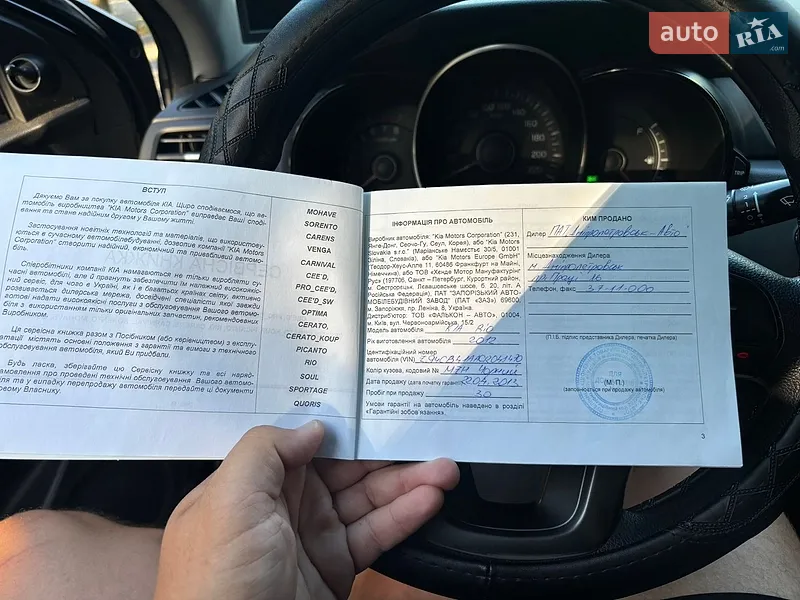 auto RIA
ВСТУП
Дякуємо Вам за покупку автомобіля KIA. Щиро сподіваємося, що автомобіль виробництва "KIA Motors Corporation" виправдає Ваші сподівання та стане надійним другом у Вашому житті.
Застосування новітніх технологій та матеріалів, що використовуються в сучасному автомобілебудуванні, дозволив компанії "KIA Motors Corporation" створити надійний, економічний та привабливий автомобіль.
Співробітники компанії KIA намагаються не тільки виробляти сучасні автомобілі, але й прагнуть забезпечити їм належний високоякісний сервіс, для чого в Україні, як і в багатьох країнах світу, активно розвивається дилерська мережа, досвідчені спеціалісти якої завжди готові надати високоякісні послуги з обслуговування Вашого автомобіля з використанням тільки оригінальних запчастин, рекомендованих Виробником.
Ця сервісна книжка разом з Посібником (або керівництвом) з експлуатації містять основні положення з гарантії та вимоги з технічного обслуговування автомобіля, який Ви придбали.
Будь ласка, зберігайте цю Сервісну книжку та всі
про проведені технічні обслуговування Вашого
та у випадку перепродажу автомобіля передайте ці документи
Власнику.
MOHAVE
SORENTO
CARENS
VENGA
CARNIVAL
CEE'D,
PRO_CEE'D,
CEE'D_SW
OPTIMA
CERATO,
CERATO_KOUP
PICANTO
RIO
SOUL
SPORTAGE
QUORIS
ІНФОРМАЦІЯ ПРО АВТОМОБІЛЬ
Виробник автомобіля "Kia Motors Corporation" (231,
Янге-Донг, Сеочо-Гу, Сеул, Корея), або "Kia Motors
Slovakia s.r.o." (Маріанське Намєстьє 30/5, 01001
Жіліна, Словакія), або "Kia Motors Europe GmbH"
(Теодор-Хеус-Алле 11, 60486 Франкфурт на Майні,
Німеччина), або ТОВ «Хенде Мотор Мануфактуринг
Рус» (197706, Санкт – Петербург, Курортний район,
м. Сестрорецьк, Левашовське шосе, б. 20, літ. А
Російська Федерація), ПАТ "ЗАПОРІЗЬКИЙ АВТО-
МОБІЛЕБУДІВНИЙ ЗАВОД" (ПАТ «ЗАЗ») 69600,
м. Запоріжжя, пр. Леніна, 8, Україна.
Дистриб'ютор: ТОВ «ФАЛЬКОН – АВТО», 01004,
м. Київ, вул. Червоноармійська, 15/2
Модель автомобіля KIA Rio
Рік виготовлення автомобіля 2012
Ідентифікаційний номер
автомобіля (VIN)
Колір кузова, кодовий № MZH Чорний
Дата продажу (дата початку гарантії) 22.04.2013
Пробіг при продажу 30
Умови гарантії на автомобіль наведено в розділі
«Гарантійні зобов'язання».
КИМ ПРОДАНО
Дилер ПАТ "Дніпропетровськ-Авто"
Місцезнаходження Дилера
м. Дніпропетровськ
Телефон, факс 37-11-000
(П.І.Б, підпис представника Дилера, печатка Дилера)
ДЛЯ
(М.П.)
(заповнюється при продажу автомобіля)
3
140
160
180
200
F
TRIP